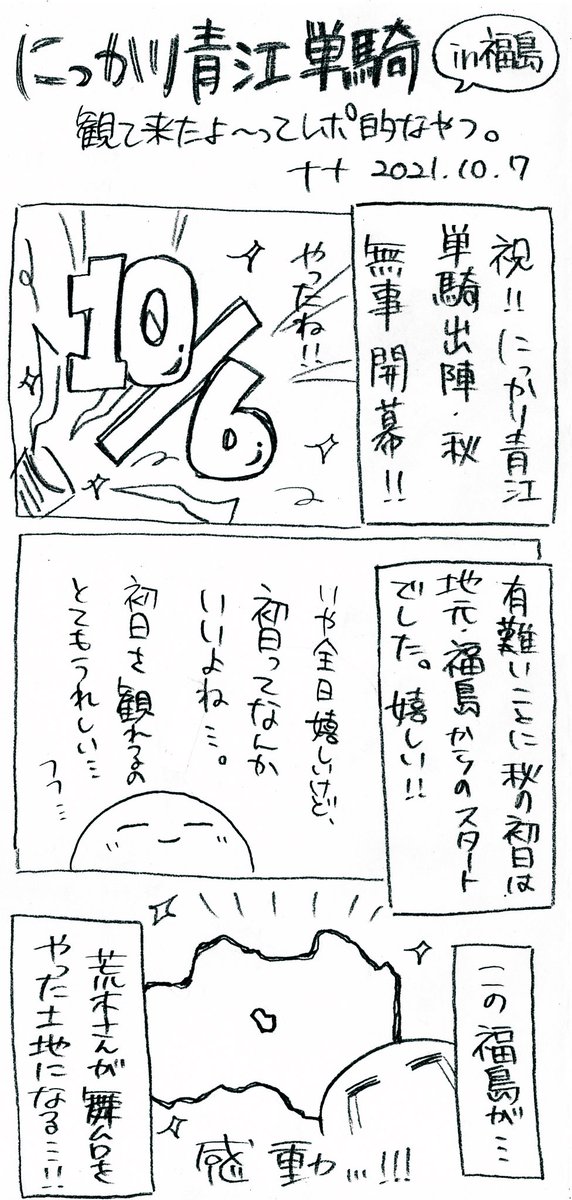 にっかり青江単騎
in福島
観て来たよ〜ってレポ的なやつ。
ナナ 2021.10.7
祝!! にっかり青江
単騎出陣・秋
無事 開幕!!
やったね!!
10/6
有難いことに秋の初日は
地元・福島からのスタート
でした。嬉しい!!
いや全日嬉しいけど、
初日ってなんか
いいよね…。
初日を観れるの
とてもうれしい…
フフ…
この福島が…
荒木さんが舞台を
やった土地になる…!!
感動…!!!